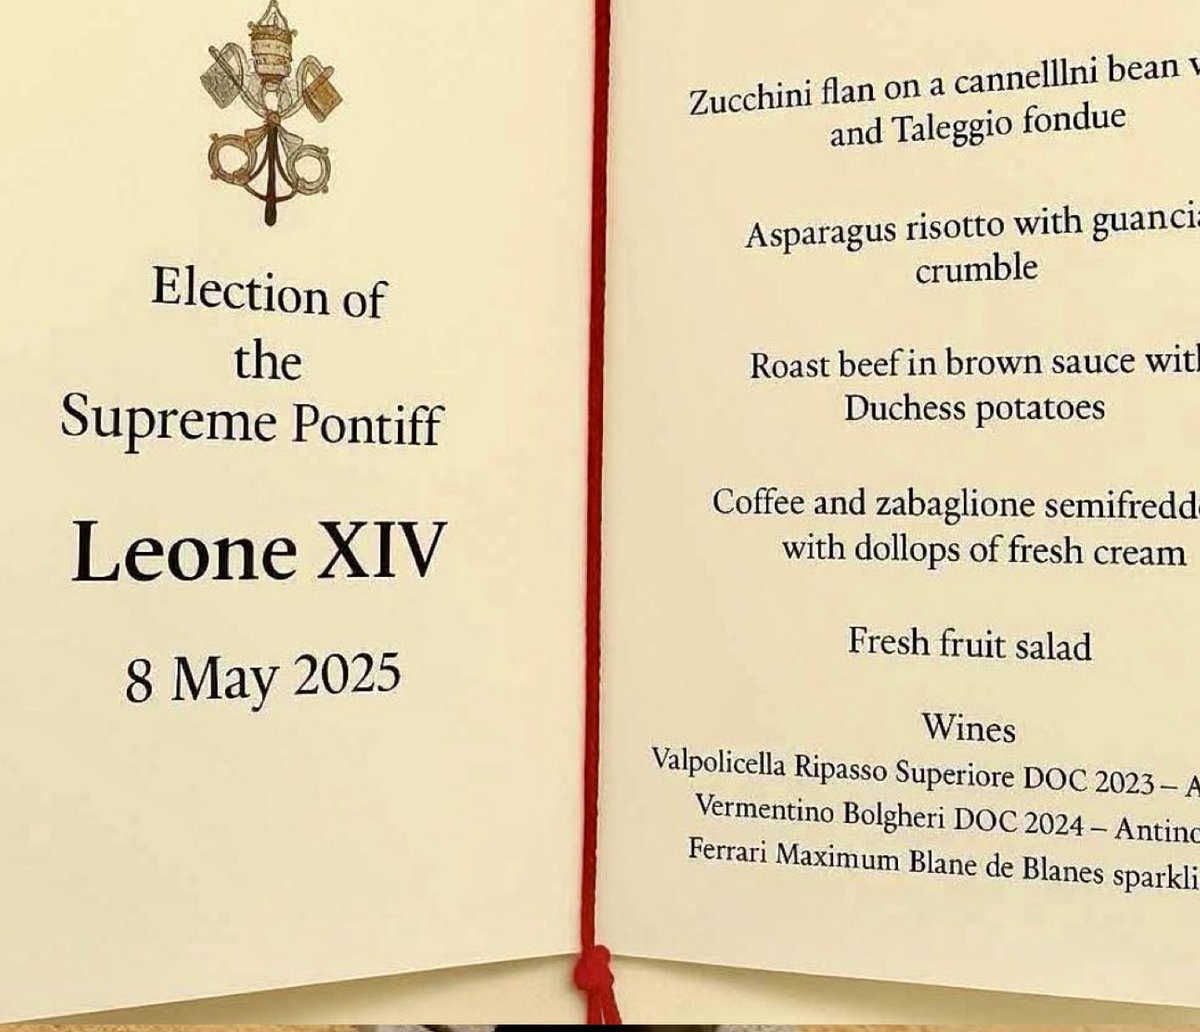 Election of
the
Supreme Pontiff
Leone XIV
8 May 2025
Zucchini flan on a cannelllni bean
and Taleggio fondue
Asparagus risotto with
crumble
Roast beef in brown sauce
Duchess potatoes
Coffee and zabaglione
with dollops of fresh cream
Fresh fruit salad
Wines
Valpolicella Ripasso Superiore DOC 2023 –
Vermentino Bolgheri DOC 2024 –
Ferrari Maximum Blane de Blanes